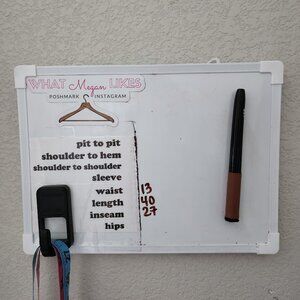 WHAT Megan LIKES
POSHMARK INSTAGRAM
pit to pit
shoulder to hem
shoulder to shoulder
sleeve
waist 13
length 40
inseam 27
hips